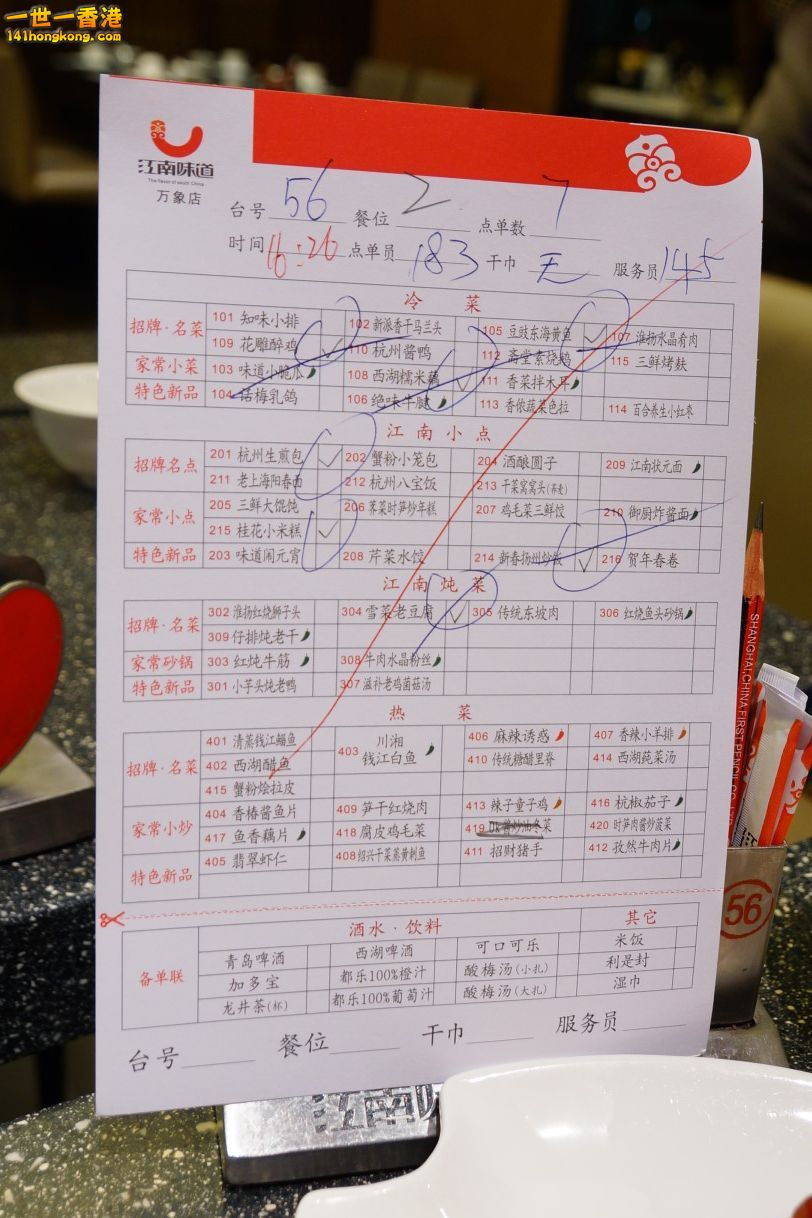 一世一香港
141hongkong.com
江南味道
The flavor of south China
万象店
台号 56 餐位 2 点单数 7
时间 16:26 点单员 183 干巾 无 服务员 145
冷 菜
招牌·名菜 101 知味小排 102 新派香干马兰头 105 豆豉东海黄鱼 107 淮扬水晶肴肉
109 花雕醉鸡 110 杭州酱鸭 112 斋堂素烧鹅 115 三鲜烤麸
家常小菜 103 味道小脆瓜 108 西湖糯米藕 111 香菜拌木耳
特色新品 104 话梅乳鸽 106 绝味牛腱 113 香侬蔬菜色拉 114 百合养生小红枣
江 南 小 点
招牌名点 201 杭州生煎包 202 蟹粉小笼包 204 酒酿圆子 209 江南状元面
211 老上海阳春面 212 杭州八宝饭 213 干菜窝窝头(荞麦)
家常小点 205 三鲜大馄饨 206 荠菜时笋炒年糕 207 鸡毛菜三鲜饺 210 御厨炸酱面
215 桂花小米糕
特色新品 203 味道闹元宵 208 芹菜水饺 214 新春扬州炒饭 216 贺年春卷
江 南 炖 菜
招牌·名菜 302 淮扬红烧狮子头 304 雪菜老豆腐 305 传统东坡肉 306 红烧鱼头砂锅
309 仔排炖老干
家常砂锅 303 红炖牛筋 308 牛肉水晶粉丝
特色新品 301 小芋头炖老鸭 307 滋补老鸡菌菇汤
热 菜
招牌·名菜 401 清蒸钱江鳊鱼 403 川湘钱江白鱼 406 麻辣诱惑 407 香辣小羊排
402 西湖醋鱼 410 传统糖醋里脊 414 西湖莼菜汤
415 蟹粉烩拉皮
家常小炒 404 香椿酱鱼片 409 笋干红烧肉 413 辣子童子鸡 416 杭椒茄子
417 鱼香藕片 418 腐皮鸡毛菜 419 420 时笋肉酱炒菠菜
特色新品 405 翡翠虾仁 408 绍兴干菜蒸黄刺鱼 411 招财猪手 412 孜然牛肉片
备单联 酒水·饮料 其它
青岛啤酒 西湖啤酒 可口可乐 米饭
加多宝 都乐100%橙汁 酸梅汤(小扎) 利是封
龙井茶(杯) 都乐100%葡萄汁 酸梅汤(大扎) 湿巾
台号 餐位 干巾 服务员
SHANGHAI,CHINA FIRST PENCIL CO.
56
江南味